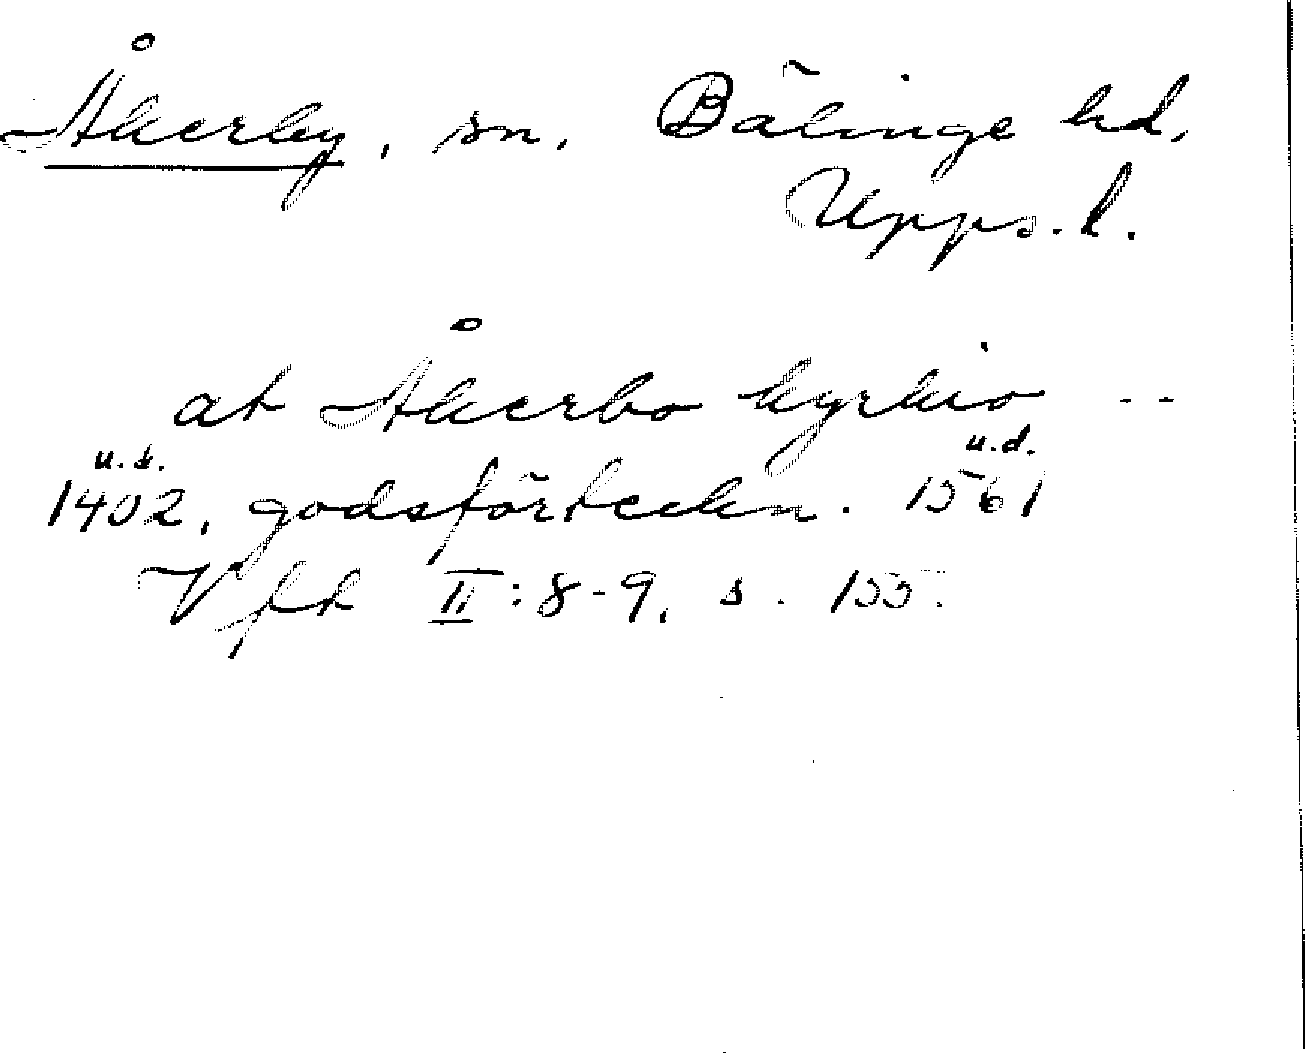 Åkerby, sn. Bälinge hd,
Upps. l.
at Åkerbo kyrkio --
u.d.
1402, godsförteckn. 1561
Vfk II:8-9, s. 155.